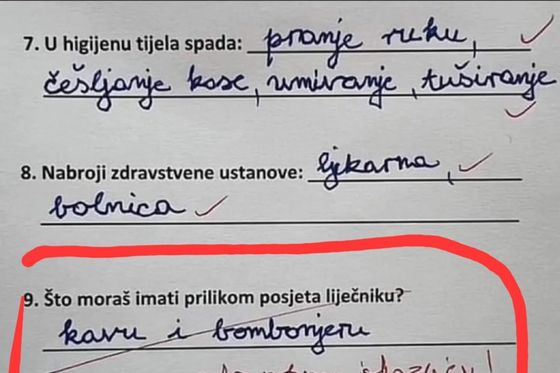 7. U higijenu tijela spada: pranje ruku,
češljanje kose, umivanje, tuširanje
8. Nabroji zdravstvene ustanove: ljekarna,
bolnica
9. Što moraš imati prilikom posjeta liječniku?
kavu i bombonjeru